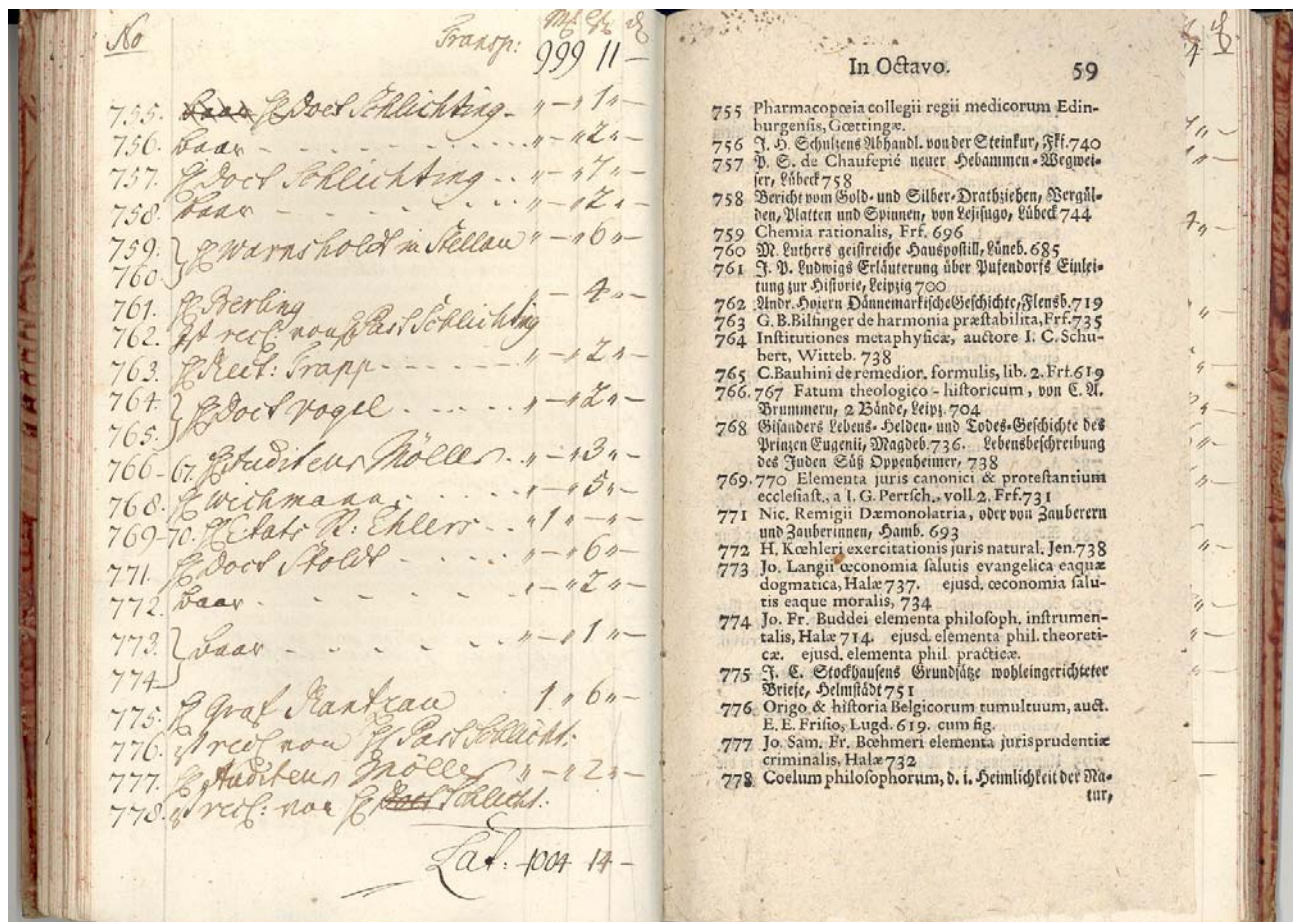 No Transp: 999 11 —
755. H Doct Schlichting - " — " 1 " —
756. baar - - - - " — " 2 " —
757. H Doct Schlichting - - " — " 7 " —
758. baar - - - - " — " 2 " —
759. H Warnsholdt in Stellau " — " 6 " —
760.
761. H Berling " — 4 " —
762. Ist recl von H Past Schlichting
763. H Rect: Trapp - - - - " — " 2 " —
764. H Doct Vogel - - - - " — " 2 " —
765.
766-67. H Auditeur Möller - - " — " 3 " —
768. H Wichmann - - - - " — " 5 " —
769-70. H Etats R: Ehlers - - " 1 " — " —
771. H Doct Stoldt - - - - " — " 6 " —
772. baar - - - - " — " 2 " —
773. baar - - - - " — " 1 " —
774
775. H Graf Rantzau 1 " 6 " —
776. ist recl von H Past Schlicht:
777. H Auditeur Möller " — " 2 " —
778. ist recl: von H Schlicht:
Lat: 1004 14 —
In Octavo. 59
755 Pharmacopœia collegii regii medicorum Edin-
burgensis, Gœttingæ.
756 J. H. Schultzens Abhandl. von der Steinkur, Fkf. 740
757 P. S. de Chaufepié neuer Hebammen-Wegwei-
ser, Lübeck 758
758 Bericht vom Gold- und Silber-Drathziehen, Vergül-
den, Platten und Spinnen, von Lejisugo, Lübeck 744
759 Chemia rationalis, Frf. 696
760 M. Luthers geistreiche Hauspostill, Lüneb. 685
761 J. P. Ludwigs Erläuterung über Pufendorfs Einlei-
tung zur Historie, Leipzig 700
762 Andr. Hojern Dännemarkische Geschichte, Flensb. 719
763 G. B. Bilfinger de harmonia præstabilita, Frf. 735
764 Institutiones metaphysicæ, auctore I. C. Schu-
bert, Witteb. 738
765 C. Bauhini de remedior. formulis, lib. 2. Frf. 619
766. 767 Fatum theologico-historicum, von C. A.
Brummern, 2 Bände, Leipz. 704
768 Gisanders Lebens- Helden- und Todes-Geschichte des
Prinzen Eugenii, Magdeb. 736. Lebensbeschreibung
des Juden Süß Oppenheimer, 738
769. 770 Elementa juris canonici & protestantium
ecclesiast., a I. G. Pertsch., voll. 2. Frf. 731
771 Nic. Remigii Dæmonolatria, oder von Zauberern
und Zauberinnen, Hamb. 693
772 H. Kœhleri exercitationis juris natural. Jen. 738
773 Jo. Langii œconomia salutis evangelica eaquæ
dogmatica, Halæ 737. ejusd. œconomia salu-
tis eaque moralis, 734
774 Jo. Fr. Buddei elementa philosoph. instrumen-
talis, Halæ 714. ejusd. elementa phil. theoreti-
cæ. ejusd. elementa phil. practicæ.
775 J. C. Stockhausens Grundsätze wohleingerichteter
Briefe, Helmstädt 751
776 Origo & historia Belgicorum tumultuum, auct.
E. E. Frisio, Lugd. 619. cum fig.
777 Jo. Sam. Fr. Bœhmeri elementa jurisprudentiæ
criminalis, Halæ 732
778 Coelum philosophorum, d. i. Heimlichkeit der Na-
tur,